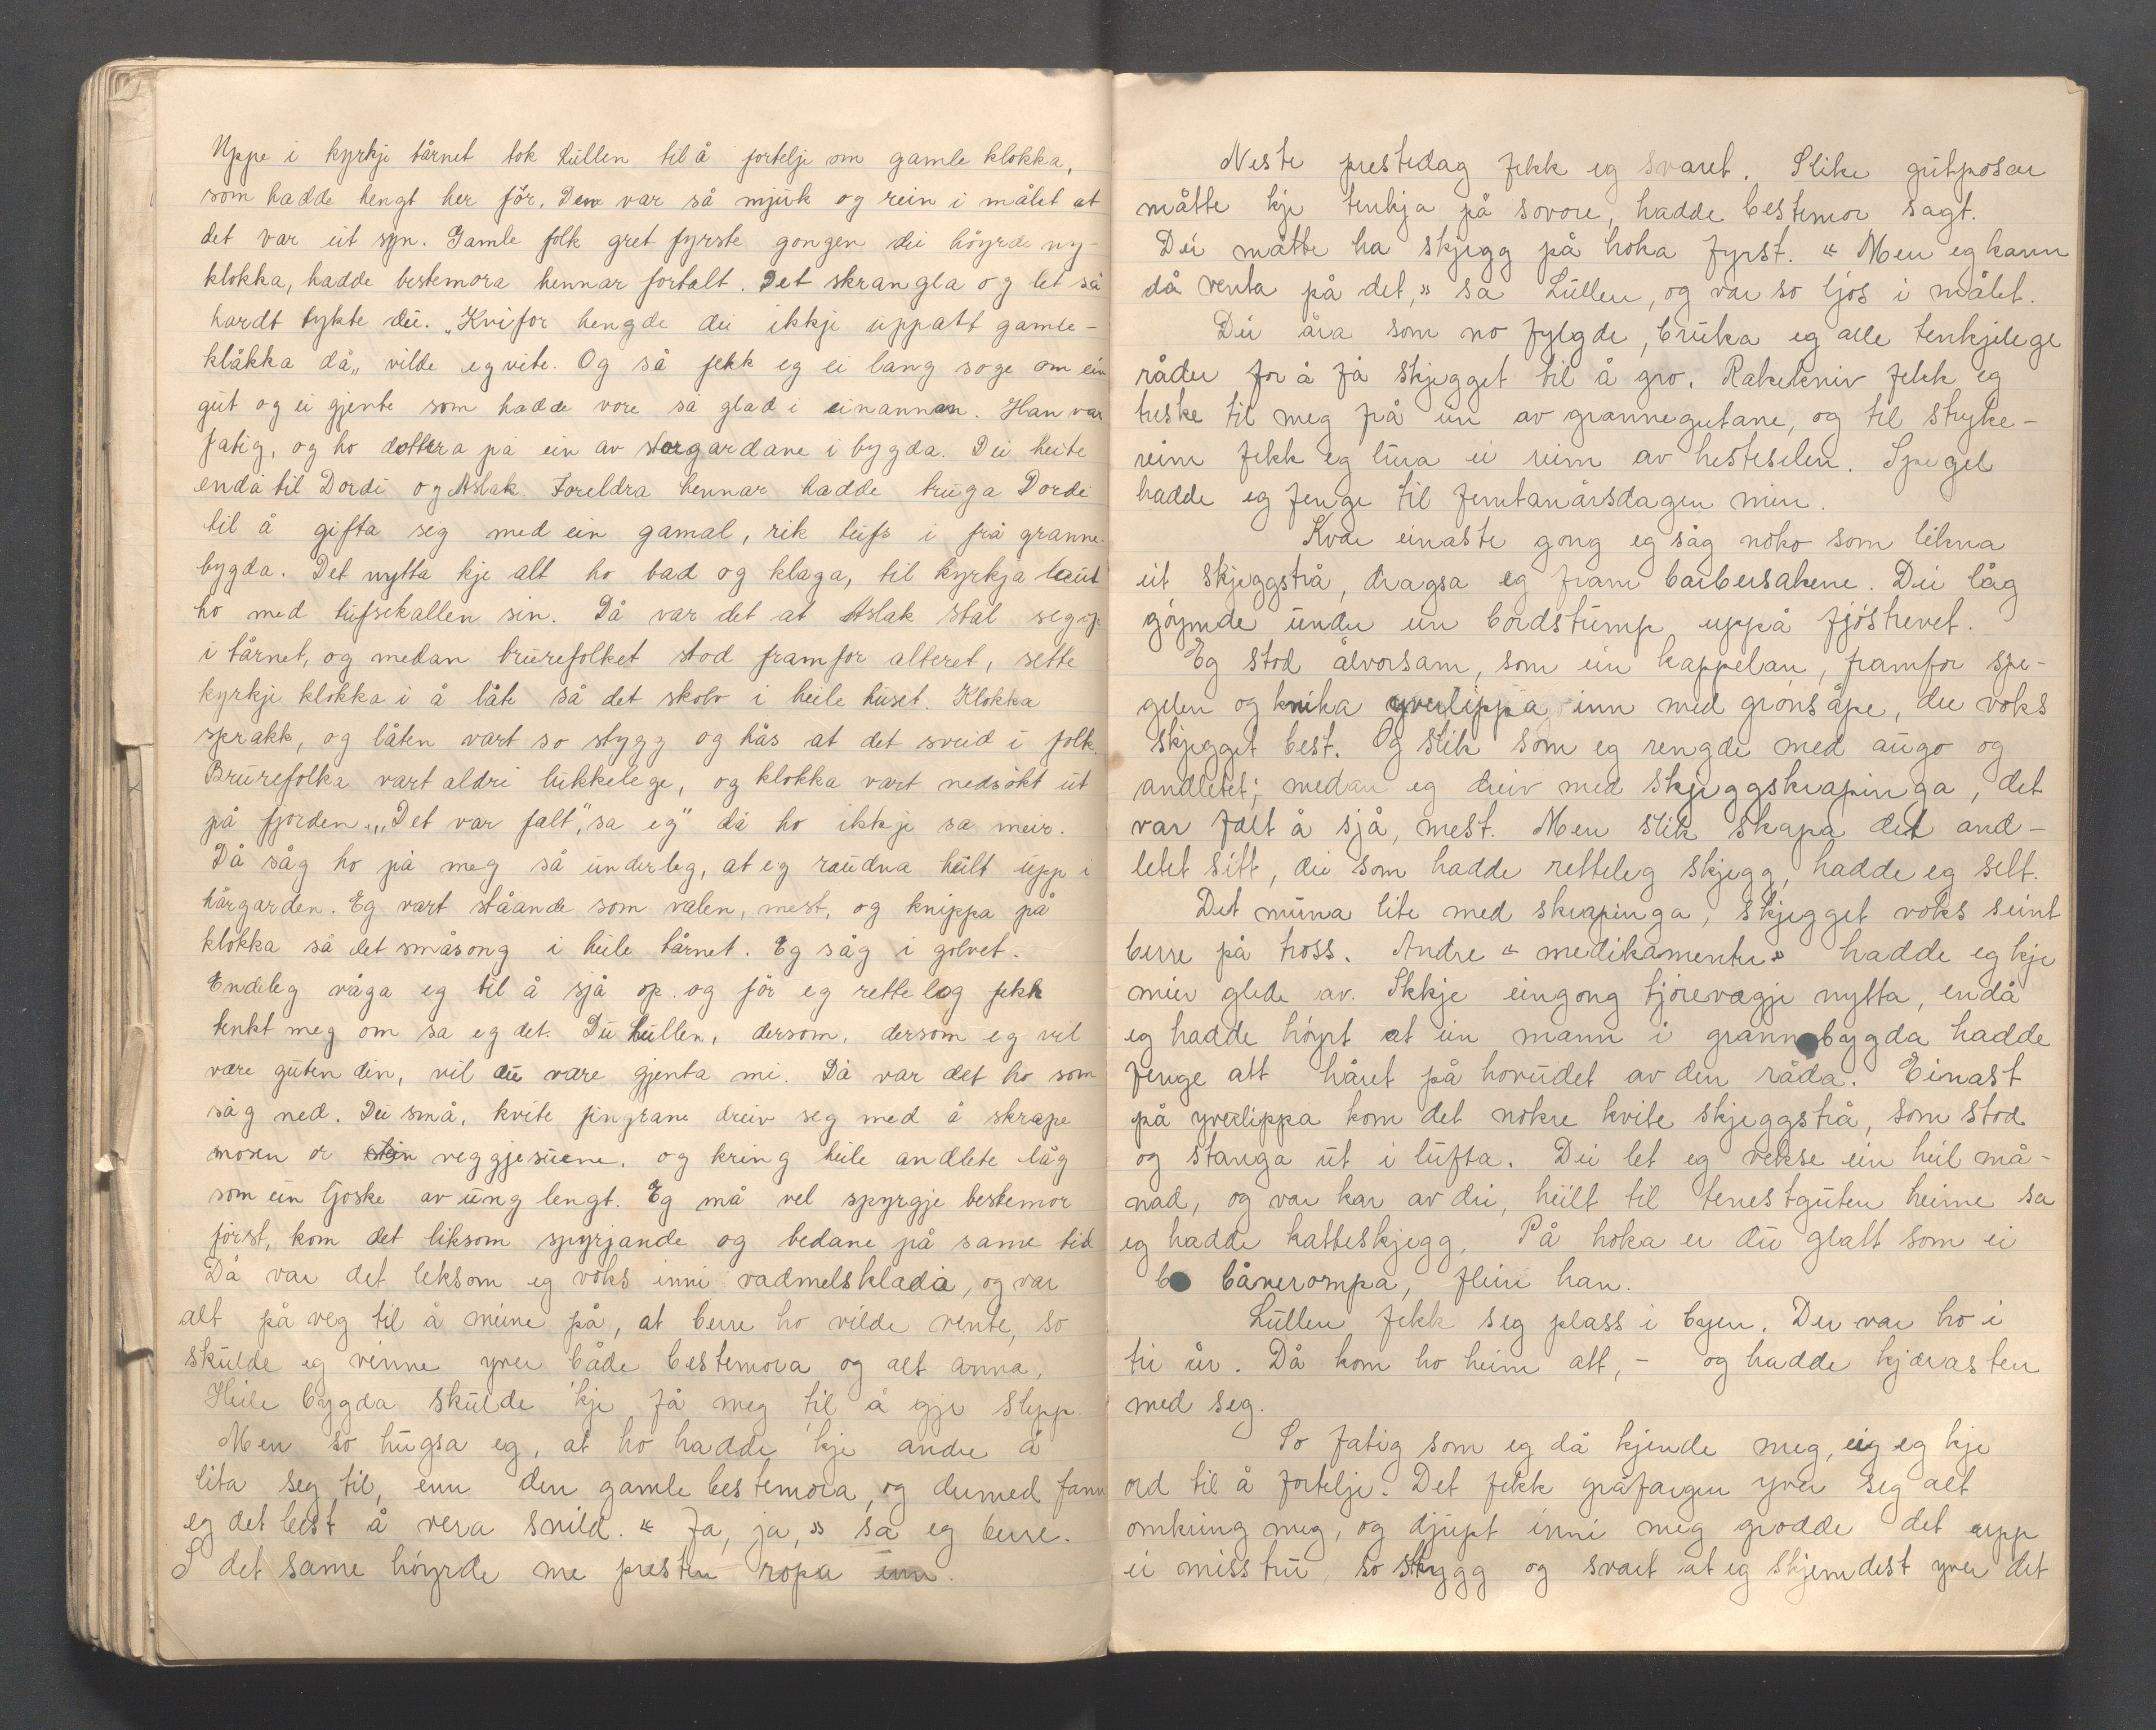 Uppe i kyrkje tårnet tok Lullen til å fortelje om gamle klokka,
som hadde hengt her för. Den var så mjuk og rein i målet at
det var ut syn. Gamle folk gret fyrste gongen dei höyrde ny-
klokka, hadde bestemora hennar fortalt. Det skrangla og let så
hardt tykte dei. „Kvifor hengde dei ikkje uppatt gamle-
klåkka då„ vilde eg vite. Og så fekk eg ei lang soge om ein
gut og ei gjente som hadde vore så glad i einannan. Han var
fatig, og ho dottera på ein av storgardane i bygda. Dei heite
endå til Dordi og Aslak. Foreldra hennar hadde truga Dordi
til å gifta seg med ein gamal, rik tufs i frå granne-
bygda. Det nytta kje alt ho bad og klaga, til kyrkja laut
ho med tufsekallen sin. Då var det at Aslak stal seg up
i tårnet, og medan brurefolket stod framfor alteret, sette
kyrkje klokka i å låte så det skolv i heile huset. Klokka
sprakk, og låten vart so stygg og hås at det sveid i folk.
Brurefolka vart aldri lukkelege, og klokka vart nedsökt ut
på fjorden. „Det var falt", sa eg" då ho ikkje sa meir.
Då såg ho på meg så underleg, at eg raudna heilt upp i
hårgarden. Eg vart ståande som valen, mest, og knippa på
klokka så det småsong i heile tårnet. Eg såg i golvet.
Endeleg våga eg til å sjå op. og för eg retteleg fekk
tenkt meg om sa eg det. Du Lullen, dersom, dersom eg vil
være guten din, vil du være gjenta mi. Då var det ho som
såg ned. Dei små, kvite fingrane dreiv seg med å skrape
mosen or veggjesuene. og kring heile andlete låg
som ein ljoske av ung lengt. Eg må vel spyrgje bestemor
först, kom det liksom spyrjande og bedane på same tid
Då var det leksom eg voks inni vadmelsklada, og var
alt på veg til å meine på, at berre ho vilde vente, so
skulde eg vinne yver både bestemora og alt anna,
Heile bygda skulde 'kje få meg til å gje slepp.
Men so hugsa eg, at ho hadde 'kje andre å
lita seg til, enn den gamle bestemora, og dermed fann
eg det best å vera snild. « Ja, ja, » sa eg berre.
I det same höyrde me presten ropa inn.
Neste prestedag fekk eg svaret. Slike gutposar
måtte kje tenkja på sovore, hadde bestemor sagt.
Dei måtte ha skjegg på hoka fyrst. « Men eg kann
då venta på det, » sa Lullen, og var so ljos i målet.
Dei åra som no fylgde, bruka eg alle tenkjelege
råder for å få skjegget til å gro. Rakekniv fekk eg
tuske til meg på ein av grannegutane, og til stryke-
reim fekk eg lura ei reim av hesteselen. Spegel
hadde eg fenge til femtanårsdagen min.
Kvar einaste gong eg såg noko som likna
eit skjeggstrå, dragsa eg fram barbersakene. Dei låg
göymde under ein bordstump uppå fjöstrevet.
Eg stod ålvorsam, som ein kappelan, framfor spe-
gelen og knika yverlippa inn med grönsåpe, der voks
skjegget best. Og slik som eg rengde med augo og
andletet; medan eg dreiv med skjeggskrapinga, det
var fælt å sjå, mest. Men slik skapa dei and-
letet sitt, dei som hadde retteleg skjegg, hadde eg sett.
Det muna lite med skrapinga, skjegget voks seint
berre på tross. Andre « medikamenter » hadde eg kje
meir glede av. Ikkje eingong tjörevægje nytta, endå
eg hadde höyrt at ein mann i grannebygda hadde
fenge att håret på hovudet av den råda. Einast
på yverlippa kom det nokre kvite skjeggstrå, som stod
og stanga ut i lufta. Dei let eg vekse ein heil må-
nad, og var kar av dei, heilt til tenestguten heime sa
eg hadde katteskjegg. På hoka er du glatt som ei
bånerompa, flein han.
Lullen fekk seg plass i byen. Der var ho i
tri år. Då kom ho heim att, - og hadde kjærasten
med seg.
So fatig som eg då kjende meg, eig eg kje
ord til å fortelje. Det fekk gråfargen yver seg alt
omkring meg, og djupt inni meg grodde det upp
ei misstru, so stygg og svart at eg skjemdest yver det